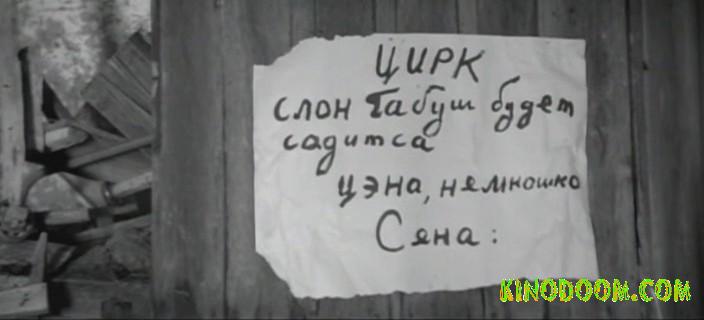 ЦИРК
слон Табуш будет
садитса
цэна, нямношко
Сяна:
KINODOOM.COM